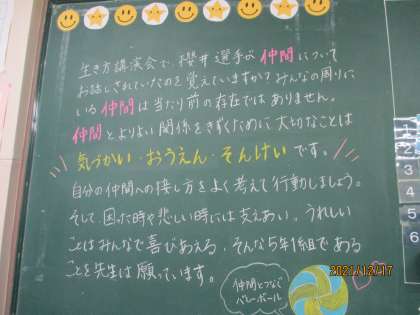 生き方講演会で、櫻井選手が仲間について
お話しされていたのを覚えていますか?みんなの周りに
いる仲間は当たり前の存在ではありません。
仲間とよりよい関係をきずくために大切なことは
気づかい・おうえん・そんけいです。
自分の仲間への接し方をよく考えて行動しましょう。
そして、困った時や悲しい時には支えあい、うれしい
ことはみんなで喜びあえる、そんな5年1組である
ことを先生は願っています。
仲間とつなぐ
バレーボール
2021/12/17
1
2
3
4
5
6